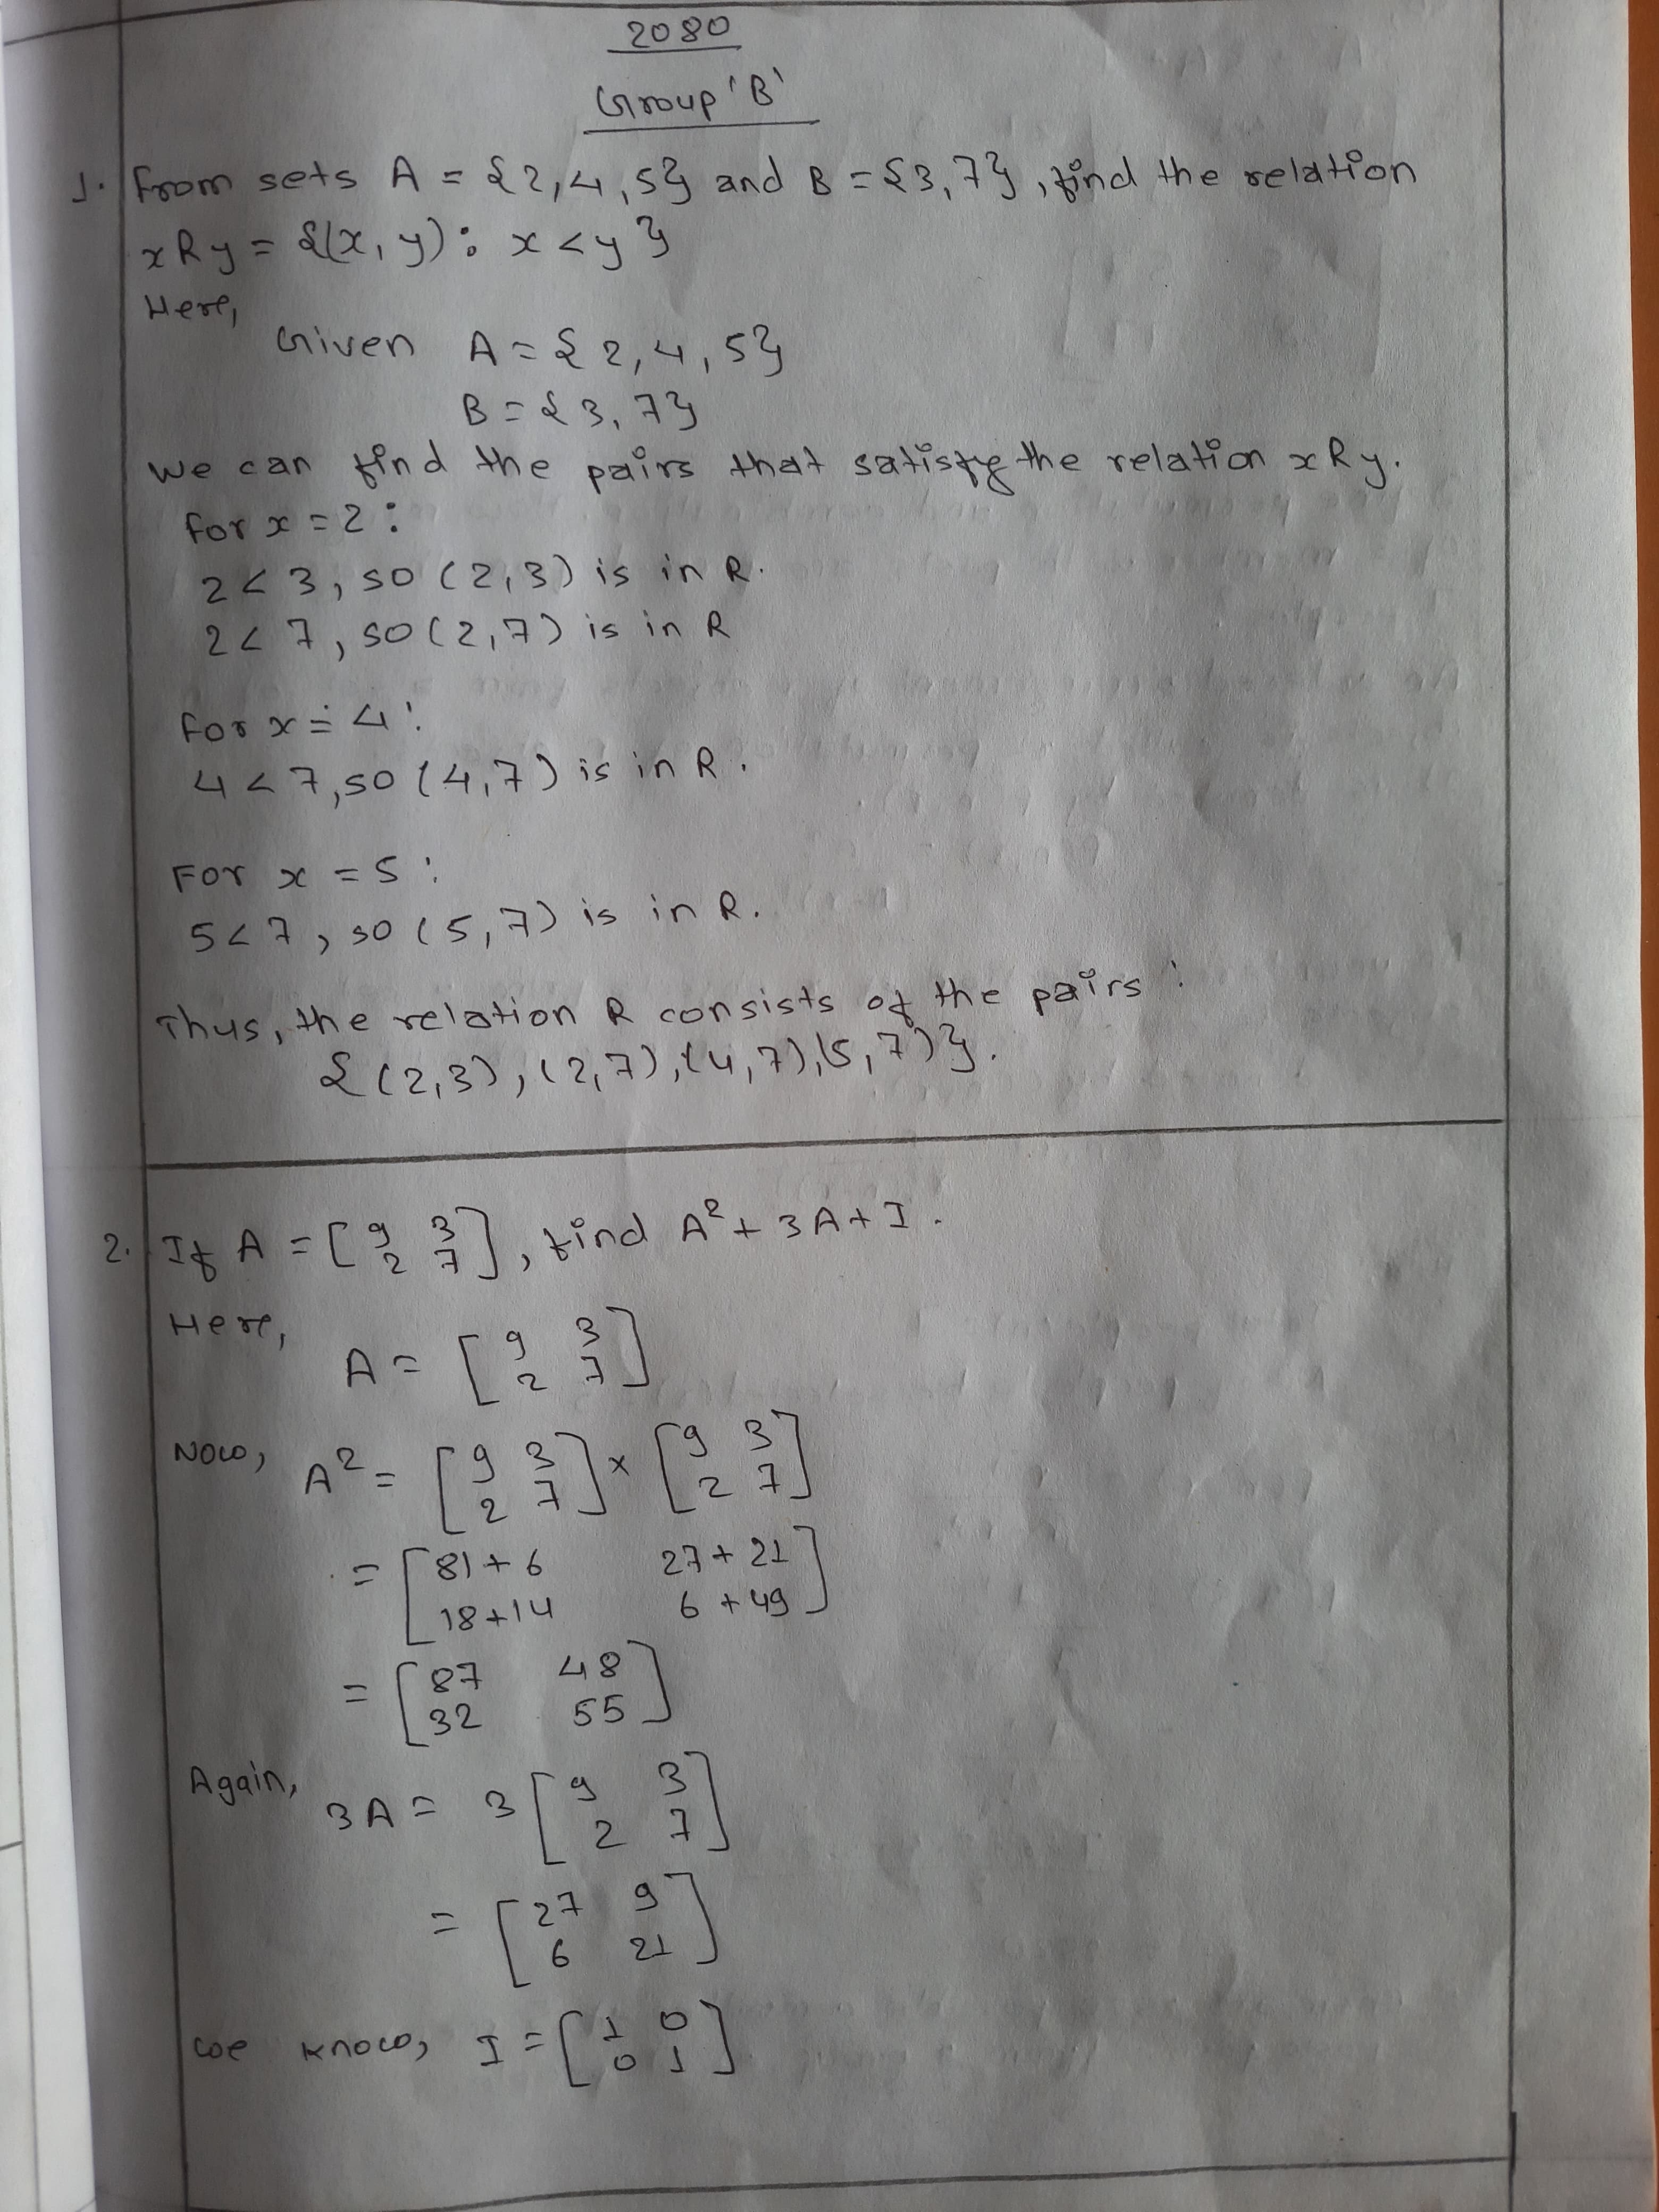 2080
Group 'B'
1. From sets A = {2,4,5} and B = {3,7}, find the relation
xRy = {(x, y): x < y}
Here,
Given A = {2,4,5}
B = {3,7}
We can find the pairs that satisfy the relation xRy.
For x = 2:
2 < 3, so (2,3) is in R.
2 < 7, so (2,7) is in R
For x = 4:
4 < 7, so (4,7) is in R.
For x = 5:
5 < 7, so (5,7) is in R.
Thus, the relation R consists of the pairs:
{(2,3), (2,7), (4,7), (5,7)}.
2. If A = [ 9 3
2 7 ], find A² + 3A + I.
Here,
A = [ 9 3
2 7 ]
Now, A² = [ 9 3 ] × [ 9 3 ]
[ 2 7 ] [ 2 7 ]
= [ 81+6 27+21
18+14 6+49 ]
= [ 87 48
32 55 ]
Again,
3A = 3 [ 9 3
2 7 ]
= [ 27 9
6 21 ]
We know, I = [ 1 0
0 1 ]